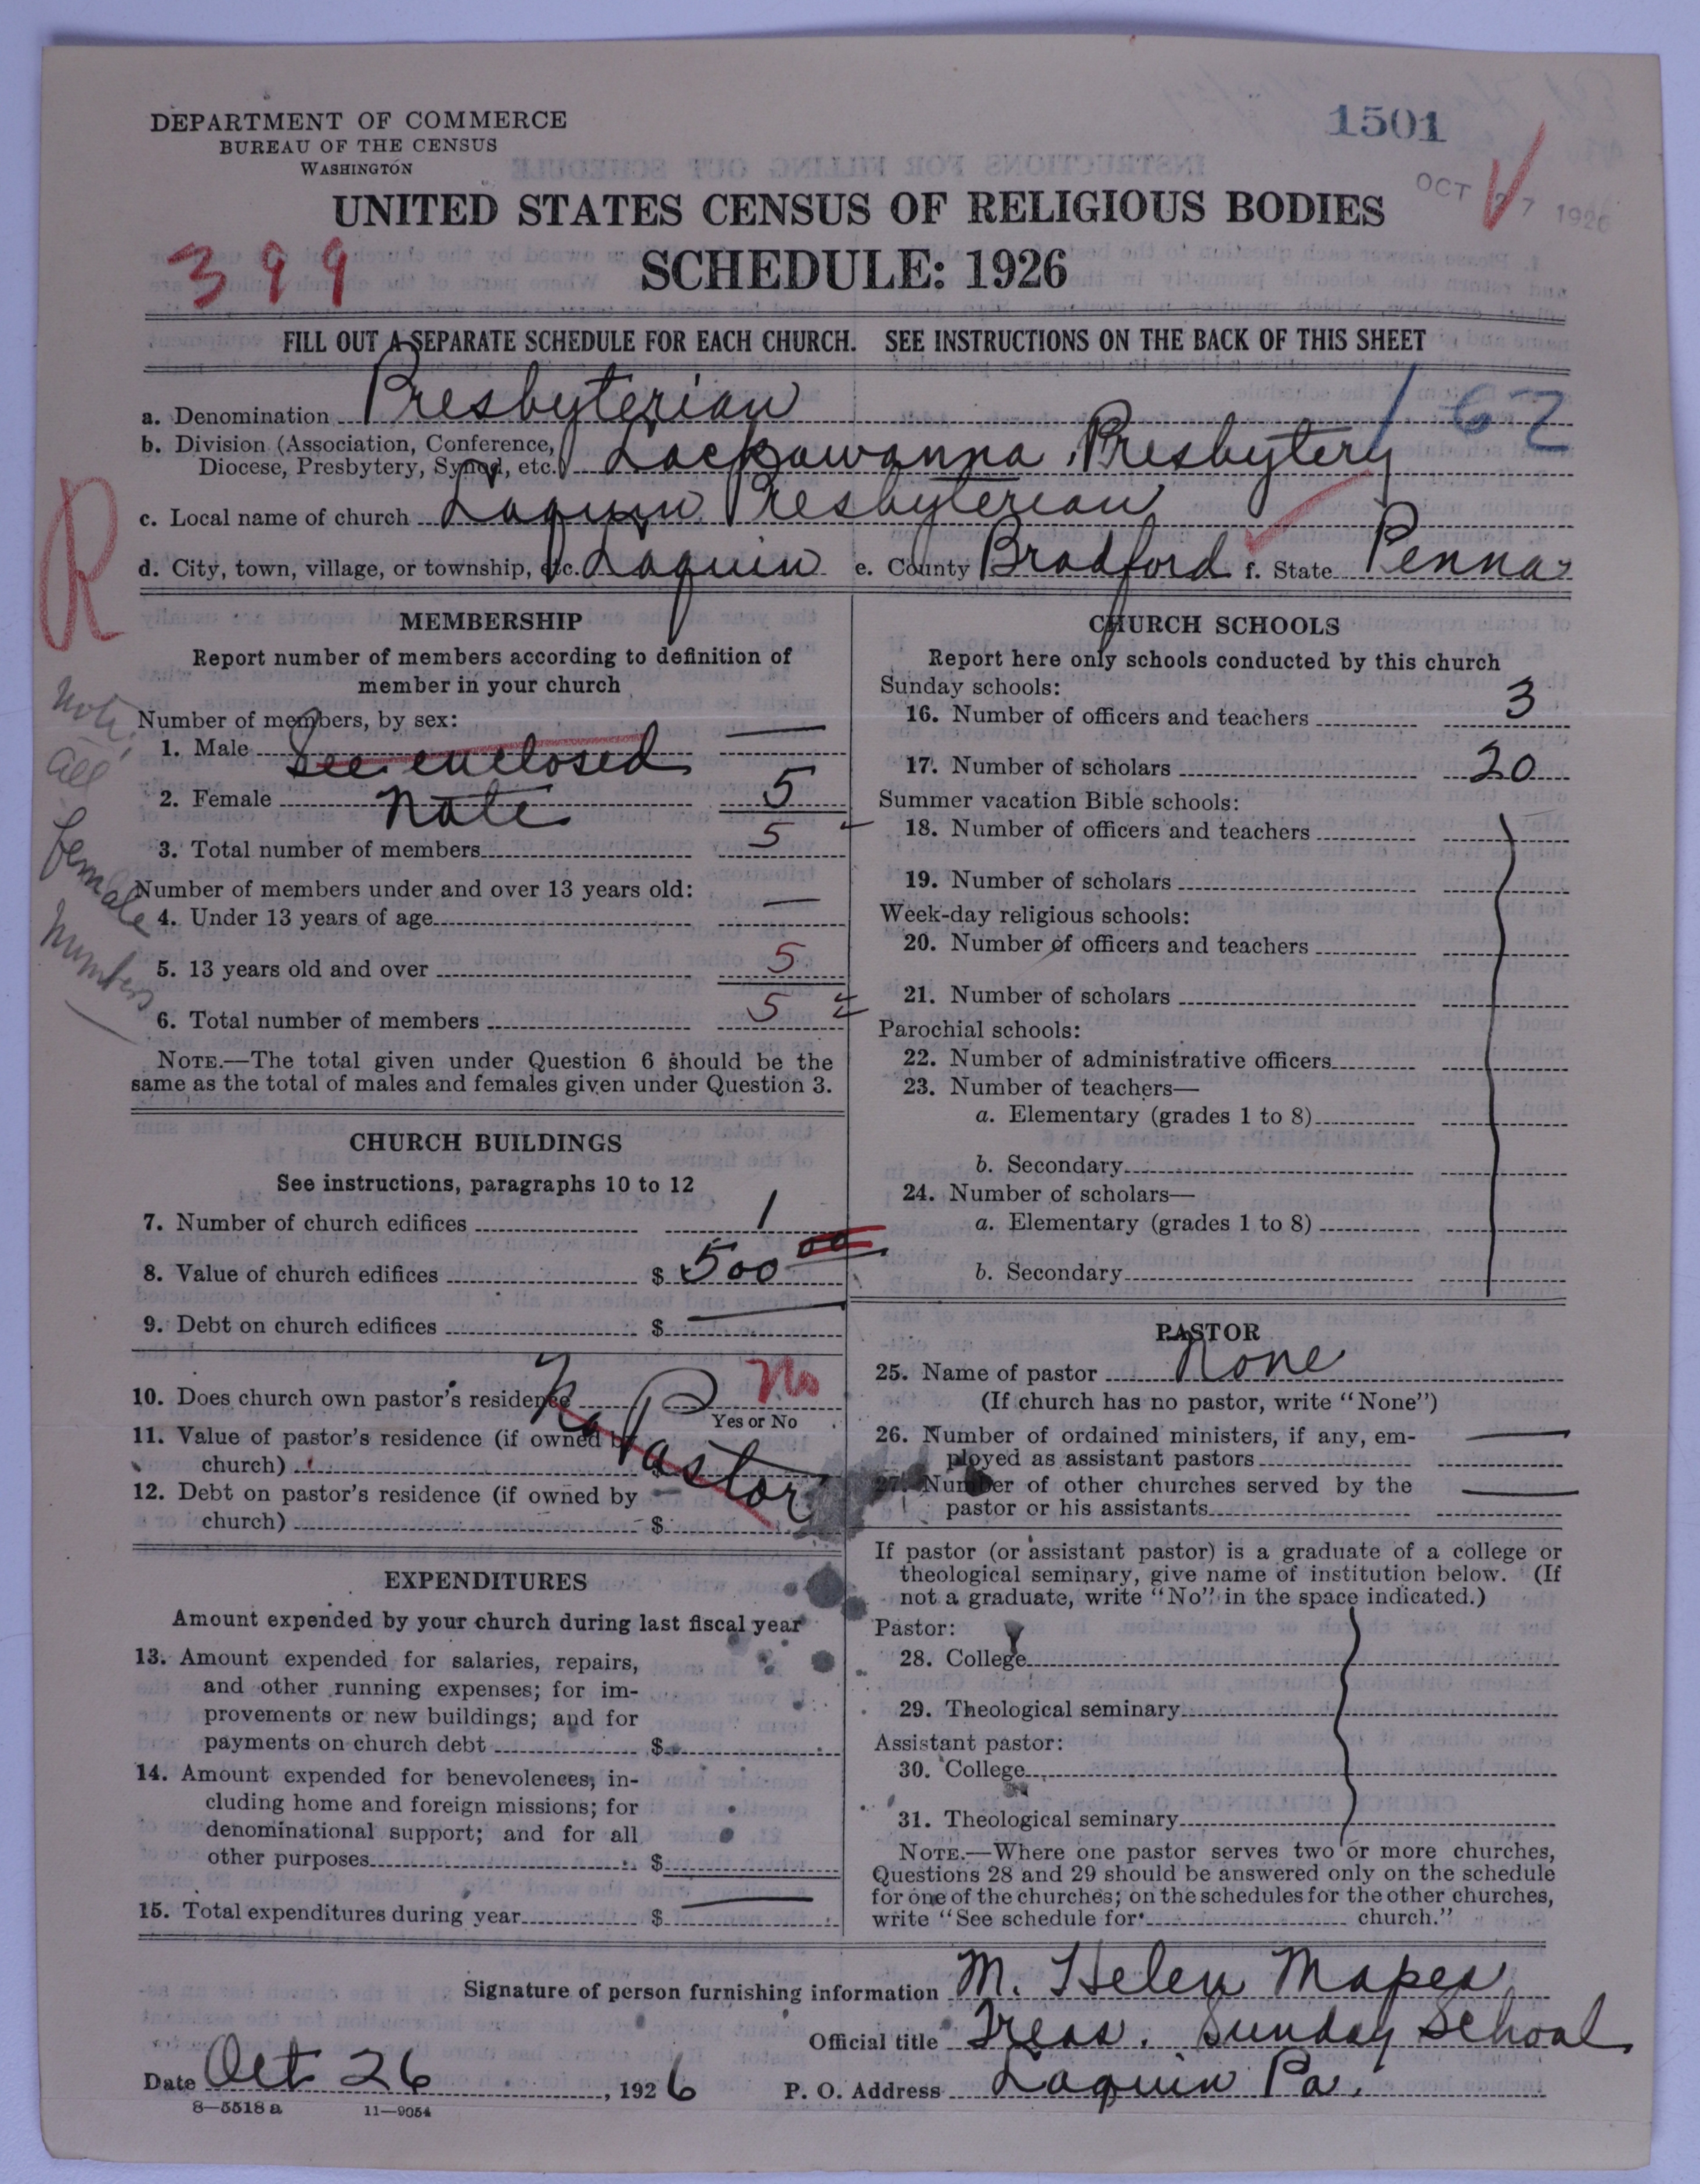 DEPARTMENT OF COMMERCE
BUREAU OF THE CENSUS
WASHINGTON
1501
OCT 27 1926
UNITED STATES CENSUS OF RELIGIOUS BODIES
399
SCHEDULE: 1926
FILL OUT A SEPARATE SCHEDULE FOR EACH CHURCH. SEE INSTRUCTIONS ON THE BACK OF THIS SHEET
a. Denomination Presbyterian
162
b. Division (Association, Conference,
Diocese, Presbytery, Synod, etc.) Lackawanna Presbytery
c. Local name of church Laquin Presbyterian
R
d. City, town, village, or township, etc. Laquin e. County Bradford f. State Penna
MEMBERSHIP
Report number of members according to definition of
member in your church
Number of members, by sex:
1. Male See enclosed —
2. Female Note 5
3. Total number of members 5
Number of members under and over 13 years old:
4. Under 13 years of age —
5. 13 years old and over 5
6. Total number of members 5
Note,
all
female
members
NOTE.—The total given under Question 6 should be the
same as the total of males and females given under Question 3.
CHURCH BUILDINGS
See instructions, paragraphs 10 to 12
7. Number of church edifices 1
8. Value of church edifices $ 500 00
9. Debt on church edifices $ —
10. Does church own pastor's residence No
Yes or No
No Pastor
11. Value of pastor's residence (if owned by
church) $
12. Debt on pastor's residence (if owned by
church) $
EXPENDITURES
Amount expended by your church during last fiscal year
13. Amount expended for salaries, repairs,
and other running expenses; for im-
provements or new buildings; and for
payments on church debt $
14. Amount expended for benevolences, in-
cluding home and foreign missions; for
denominational support; and for all
other purposes $
15. Total expenditures during year $ —
CHURCH SCHOOLS
Report here only schools conducted by this church
Sunday schools:
16. Number of officers and teachers 3
17. Number of scholars 20
Summer vacation Bible schools:
18. Number of officers and teachers
19. Number of scholars
Week-day religious schools:
20. Number of officers and teachers
21. Number of scholars
Parochial schools:
22. Number of administrative officers
23. Number of teachers—
a. Elementary (grades 1 to 8)
b. Secondary
24. Number of scholars—
a. Elementary (grades 1 to 8)
b. Secondary
PASTOR
25. Name of pastor None
(If church has no pastor, write "None")
26. Number of ordained ministers, if any, em-
ployed as assistant pastors —
27. Number of other churches served by the
pastor or his assistants —
If pastor (or assistant pastor) is a graduate of a college or
theological seminary, give name of institution below. (If
not a graduate, write "No" in the space indicated.)
Pastor:
28. College
29. Theological seminary
Assistant pastor:
30. College
31. Theological seminary
NOTE.—Where one pastor serves two or more churches,
Questions 28 and 29 should be answered only on the schedule
for one of the churches; on the schedules for the other churches,
write "See schedule for church."
Signature of person furnishing information M. Helen Mapes
Official title Treas. Sunday School
Date Oct 26, 1926 P. O. Address Laquin Pa.
8—5518a 11—9054